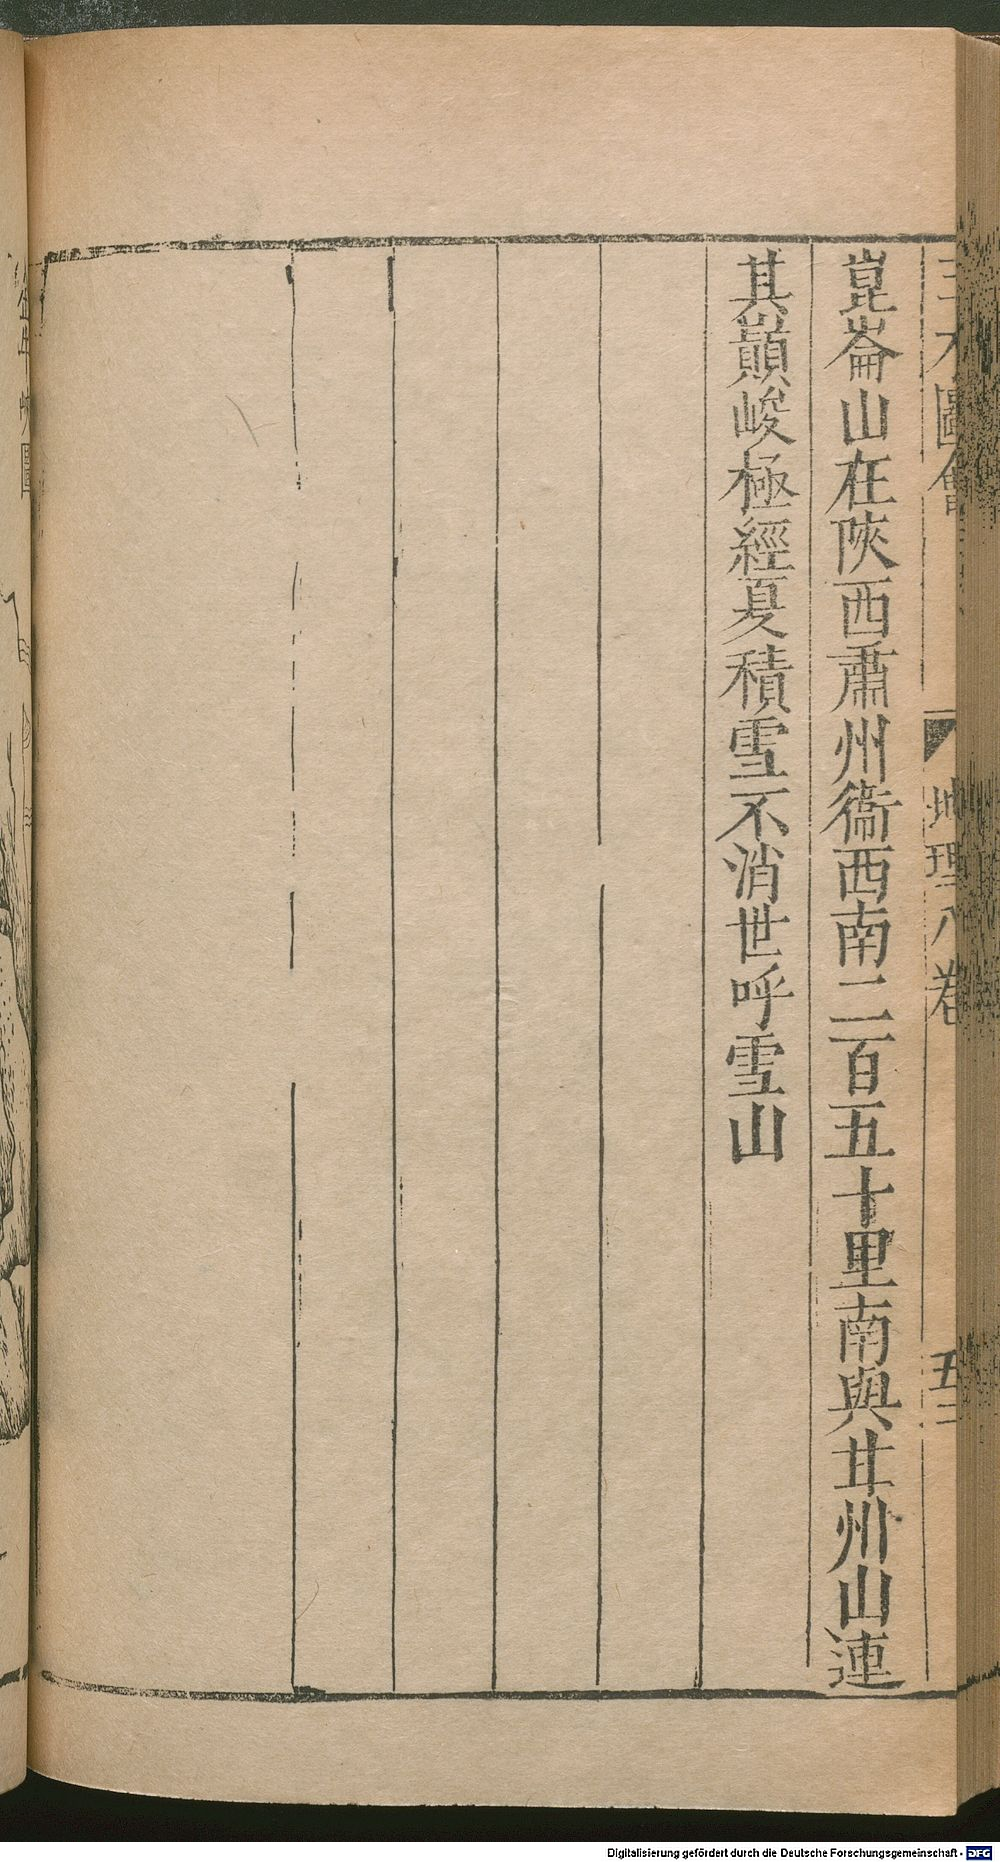 三才圖會
地理八卷
五二
崑崙山在陜西肅州衞西南二百五十里南與甘州山連
其巔峻極經夏積雪不消世呼雪山
Digitalisierung gefördert durch die Deutsche Forschungsgemeinschaft - DFG